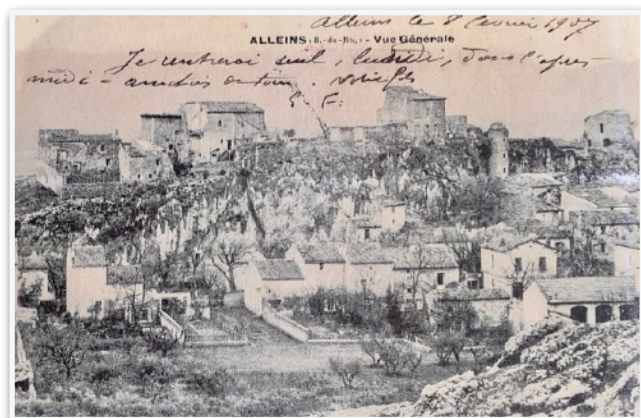 Alleins le 8 février 1907
ALLEINS (B.-du-Rh.) - Vue Générale
Je rentrerai seul, lundi, dans l'après
midi - votre fils